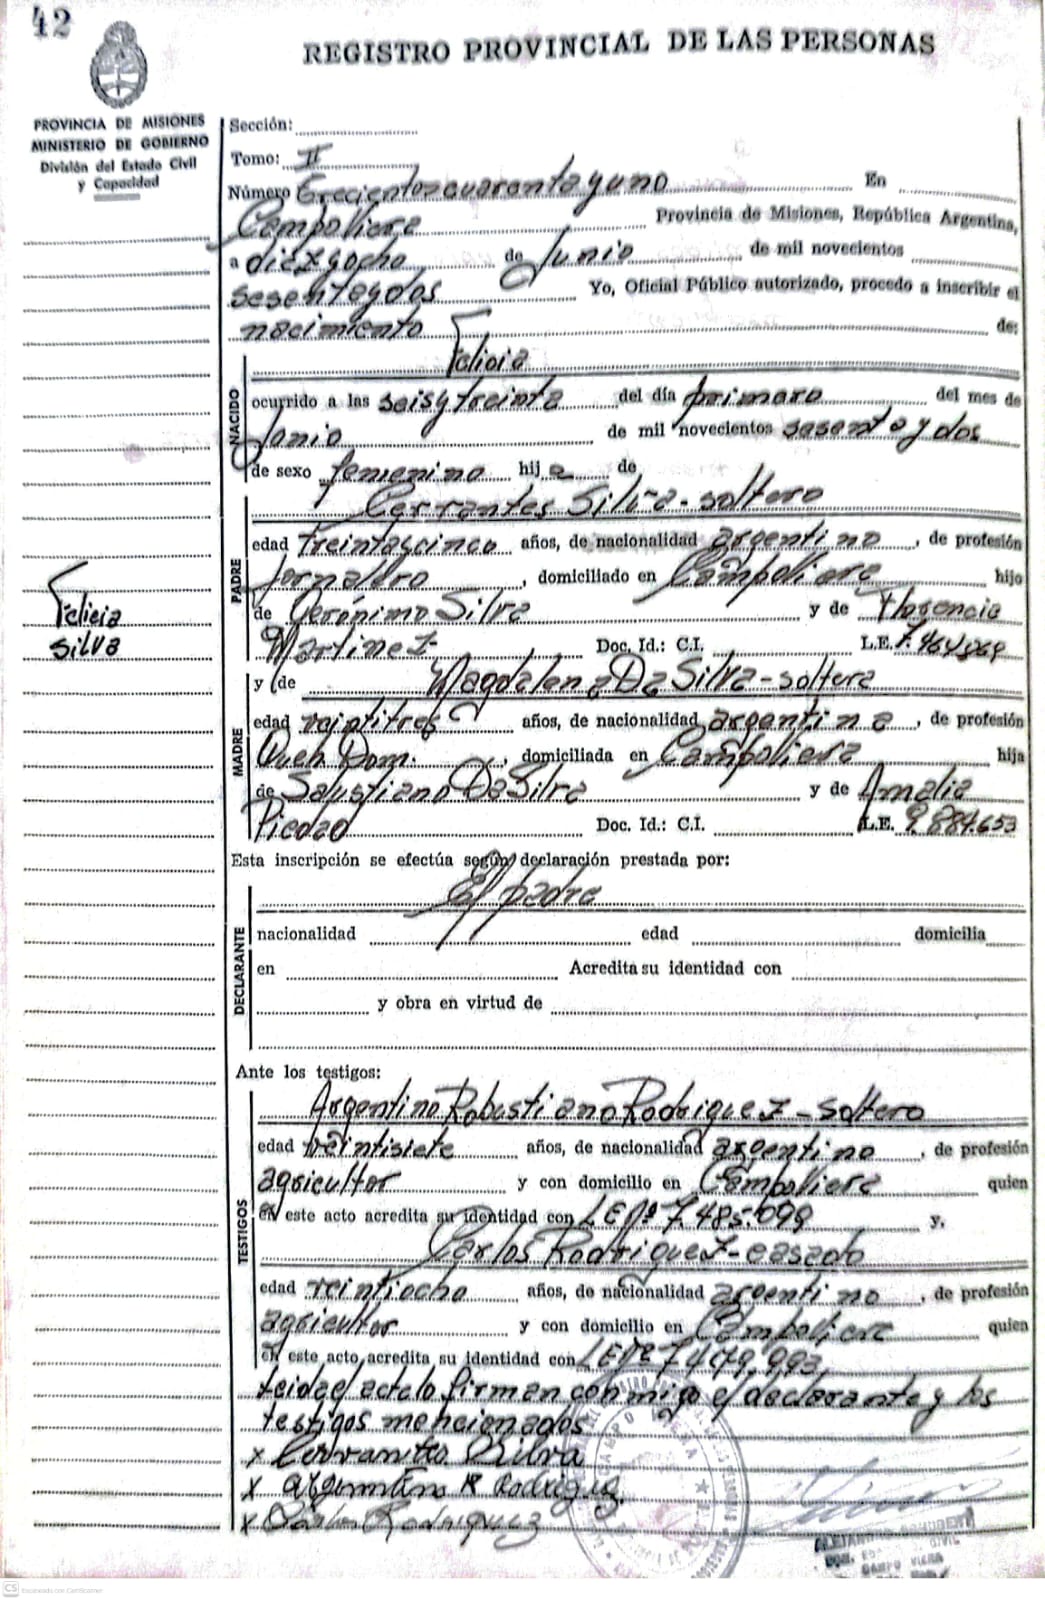 42
REGISTRO PROVINCIAL DE LAS PERSONAS
PROVINCIA DE MISIONES
MINISTERIO DE GOBIERNO
División del Estado Civil
y Capacidad
Sección:
Tomo: II
Número Trecientos cuarenta y uno En
Campo Viera Provincia de Misiones, República Argentina,
a diez y ocho de Junio de mil novecientos
sesenta y dos Yo, Oficial Público autorizado, procedo a inscribir el
nacimiento de:
NACIDO
Felicia
ocurrido a las seis y treinta del día primero del mes de
Junio de mil novecientos sesenta y dos
de sexo femenino hija de
PADRE
Cerrantes Silva - soltero
edad treinta y cinco años, de nacionalidad argentino, de profesión
Jornalero, domiciliado en Campo Viera hijo
de Gerónimo Silva y de Florencia
Martinez Doc. Id.: C.I. L.E. 7.464.869
Felicia
Silva
MADRE
y de Magdalena Da Silva - soltera
edad veintitres años, de nacionalidad argentina, de profesión
Queh Dom., domiciliada en Campo Viera hija
de Salustiano Da Silva y de Amalia
Piedad Doc. Id.: C.I. L.E. 9.884.653
Esta inscripción se efectúa según declaración prestada por:
DECLARANTE
El padre
nacionalidad edad domicilia
en Acredita su identidad con
y obra en virtud de
Ante los testigos:
TESTIGOS
Argentino Robustiano Rodriguez - Soltero
edad veintisiete años, de nacionalidad argentino, de profesión
agricultor y con domicilio en Campo Viera quien
en este acto acredita su identidad con LE Nº 7.485.099 y,
Carlos Rodriguez - casado
edad veintiocho años, de nacionalidad argentino, de profesión
agricultor y con domicilio en Campo Viera quien
en este acto acredita su identidad con LE Nº 7.479.993
leida el acta lo firman conmigo el declarante y los
testigos mencionados
x Cerrantes Silva
x Argentino R Rodriguez
x Carlos Rodriguez
CAMPO VIERA
CS Escaneado con CamScanner